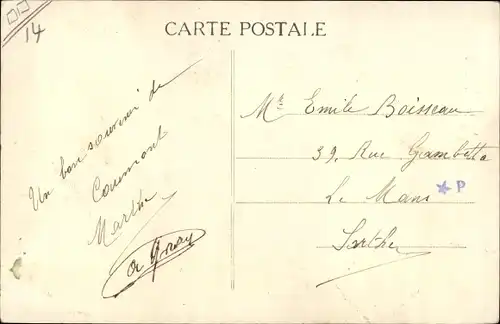 14
CARTE POSTALE
Un bon souvenir de
Caumont
Martin
Mr Emile Boisseau
39, Rue Gambetta
Le Mans
Sarthe
P